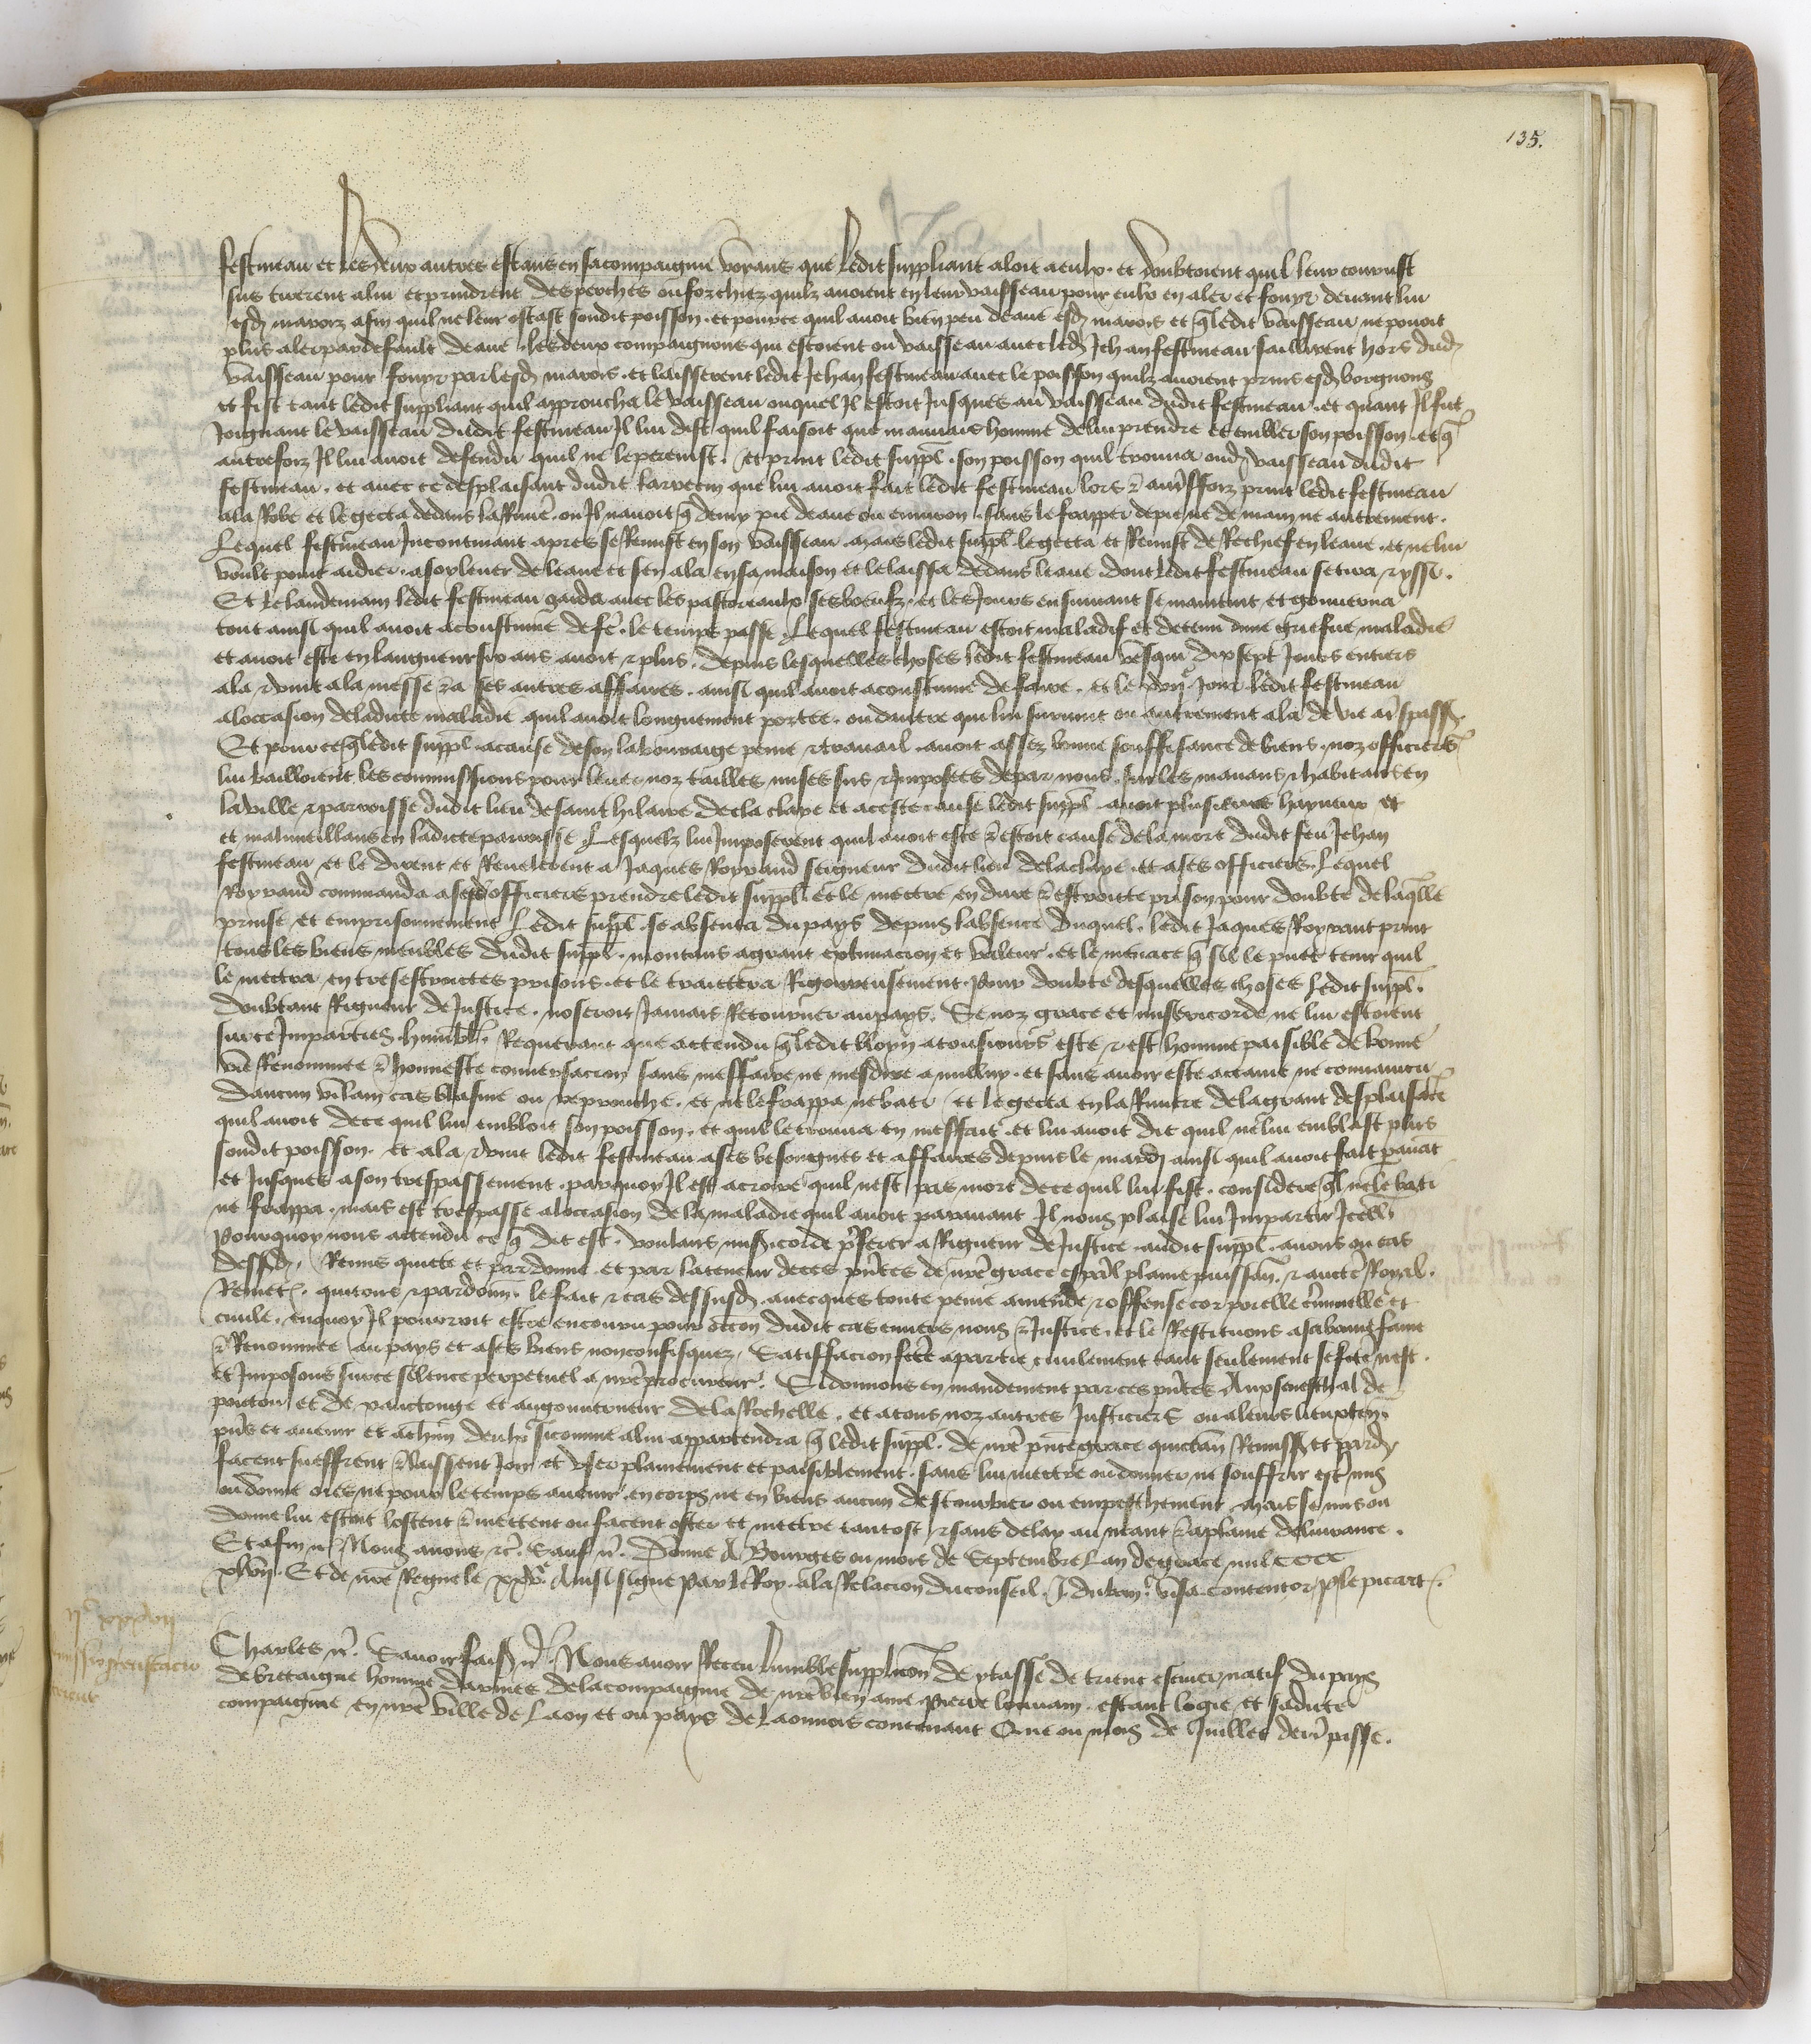 135.
festineau et les deux autres estans en sa compaignie voyans que ledit suppliant aloit a eulx. et doubtoient quil leur courust
sus tirerent a lui et prindrent des perches ou forchiez quilz avoient en leur vaisseau pour eulx en aler et fouyr devant lui
esd marois afin quil ne leur ostast sondit poisson. et pource quil avoit bien peu deaue esd marois et q ledit vaisseau ne povoit
plus aler par default deaue. les deux compaignons qui estoient ou vaisseau avec led Jehan festineau saillirent hors dud
vaisseau pour fouyr par lesd marois. et laisserent ledit Jehan festineau avec le poisson quilz avoient prins esd borgnons
et fist tant ledit suppliant quil approucha le vaisseau ouquel Il estoit Jusques au vaisseau dudit festineau. et quant Il fut
Joignant le vaisseau dudit festineau Il lui dist quil faisoit que mauvais homme de lui prendre et embler son poisson. et q
autreforz Il lui avoit defendu quil ne le preinst. et print ledit suppl. son poisson quil trouva oud vaisseau dudit
festineau. et avec ce desplaisant dudit larrecin que lui avoit fait ledit festineau lors & autreffoiz print ledit festineau
a la Robe et le gecta dedans la Riviere. ou Il navoit q demy pie deaue ou environ. sans le frapper de pie ne de main ne autrement.
Lequel festineau Incontinant apres se Remist en son vaisseau. mais ledit suppl. le gecta et Remist de Rechief en leaue. et ne lui
voult point aidier. a soy lever de leaue et sen ala en sa maison et le laissa dedans leaue. dont ledit festineau se tira & yssi.
Et le landemain ledit festineau garda avec les pastoreaulx ses beufz. et les Jours ensuivant se maintint et gouverna
tout ainsi quil avoit acoustume de fe. le temps passe. Lequel festineau estoit maladif et detenu dune griefve maladie
et avoit este en langueur six ans avoit & plus. depuis lesquelles choses ledit festineau vesqui dix sept Jours entiers
ala & vint a la messe & a ses autres affaires. ainsi quil avoit acoustume de faire. et le xviie Jour ledit festineau
a loccasion de ladicte maladie quil avoit longuement portee. ou dautre qui lui survint ou autrement ala de vie a trespass.
Et pource q ledit suppl. a cause de son labouraige peine & travail. avoit assez bonne souffisance de biens. noz officiers
lui bailloient les commissions pour lever noz tailles mises sus & Imposees de par nous. sur les manans & habitans en
la ville & parroisse dudit lieu de saint hilaire de la claye et a ceste cause ledit suppl. avoit plusieurs hayneux et
et malveillans en ladicte parroisse. Lesquelz lui Imposerent quil avoit este & estoit cause de la mort dudit feu Jehan
festineau et le dirent et Revelerent a Jaques Royrand seigneur dudit lieu de la claye. et a ses officiers. Lequel
Royrand commanda a sesd officiers prendre ledit suppl. et le mectre en dure & estroicte prison pour doubte de laqlle
prinse et emprisonnement Ledit suppl. se absenta du pays depuis labsence duquel. ledit Jaques Royrant print
tous les biens meubles dudit suppl. montans a grant extimacion et valeur. et le menace q sil le puet tenir quil
le mectra en tres estroictes prisons. et le traictera Rigoureusement. Pour doubte desquelles choses ledit suppl.
doubtant Rigueur de Justice. noseroit Jamais Retourner au pays. Se noz grace et misericorde ne lui estoient
sur ce Imparties. humbl. Requerant que attendu q ledit bloyn a tousiours este & est homme paisible de bonne
vie Renommee & honneste conversacion sans meffaire ne mesdire a nulluy. et sans avoir este actaint ne convaincu
daucun vilain cas blasme ou reprouche. et ne le frappa ne bati et le gecta en la Riviere de la grant desplaisance
quil avoit de ce quil lui embloit son poisson. et quil le trouva en meffait. et lui avoit dit quil ne lui emblast plus
sondit poisson. et ala & vint ledit festineau a ses besongnes et affaires depuis le mardi ainsi quil avoit fait paravat
et Jusques a son trespassement. parquoy Il est a croire quil nest pas mort de ce quil lui fist. considere ql ne le bati
ne frappa. mais est trespasse a loccasion de la maladie quil avoit paravant Il nous plaise lui Impartir Icell.
Pourquoy nous attendu ce q dit est. voulans misericorde pferer a Rigueur de Justice. audit suppl. avons ou cas
dessusd. Remis quicte et pardonne et par la teneur de ces pntes de nre grace espal plaine puissan. & aucte Royal.
Remet. quitons & pardonn. le fait & cas dessusd. avecques toute peine amende & offense corporelle criminelle et
civile. en quoy Il pourroit estre encouru pour occon dudit cas envers nous & Justice. et le Restituons a sa bonne fame
& Renommee au pays et a ses biens non confisquez. Satiffacion fcte a partie civilement tant seulement se fcte nest.
et Imposons sur ce silence perpetuel a nre procureur. Si donnons en mandement par ces pntes Aux seneschal de
poictou et de xanctonge et au gouverneur de la Rochelle. et a tous noz autres Justiciers ou a leurs lieuxten.
pns et avenir et a chun deulx sicomme a lui appartendra q ledit suppl. de nre pnte grace quictan Remiss et pard
facent sueffrent & laissent Jouir et user plainement et paisiblement. sans lui mectre ou donner ne souffrir estre mis
ou donne ores ne pour le temps avenir en corps ne en biens aucun destourbier ou empeschement. mais se mis ou
donne lui estoit lostent & mettent ou facent oster et mectre tantost & sans delay au neant & a plaine delivrance.
Et afin &c Nous avons &c. Sauf &c. Donne A Bourges ou mois de Septembre Lan de grace mil cccc
xlvij. Et de nre Regne le xxve. Ainsi signe Par le Roy. a la Relacion du conseil. J. duban. visa. contentor. P. le picart.
ijc xxxvij
Charles &c. Savoir fais. &c. Nous avoir Receu lumble supplicon de ytasse de trient escuier natif du pays
de bretaigne homme darmes de la compaignie de nre bien ame Pierre louvain. estant logie et sadicte
compaignie en nre ville de Laon et ou pays de Laonnois contenant Que ou mois de Juillet dern passe.